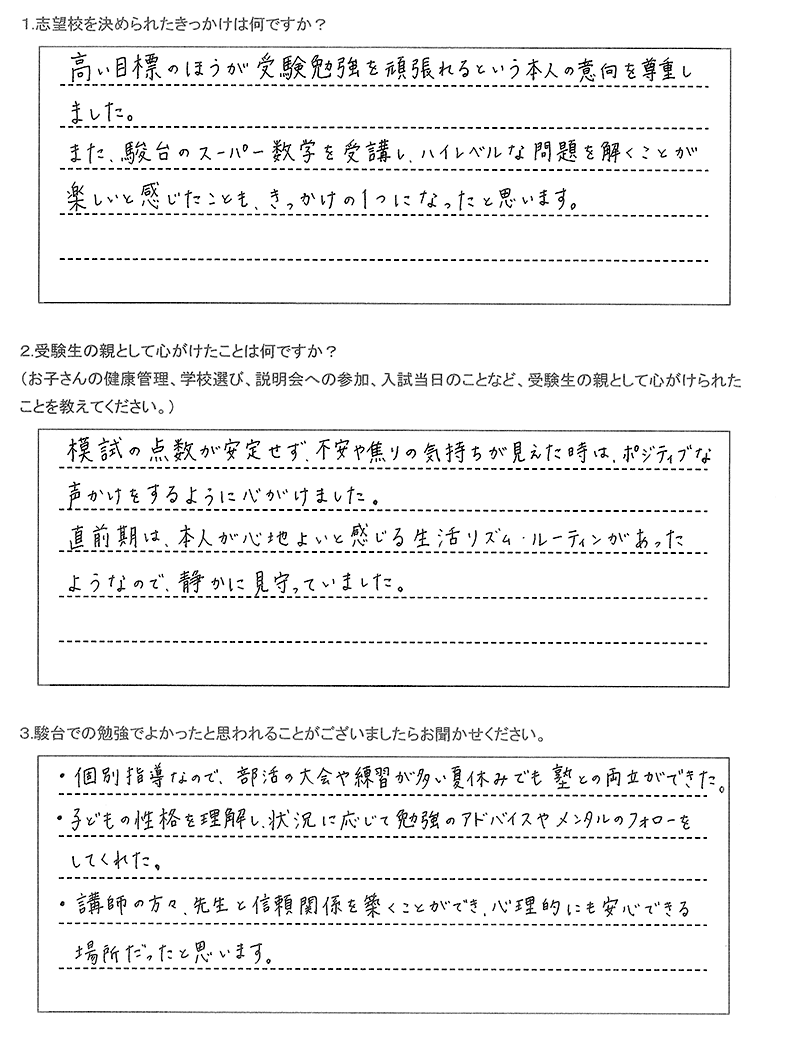 1.志望校を決められたきっかけは何ですか？
高い目標のほうが受験勉強を頑張れるという本人の意向を尊重し
ました。
また、駿台のスーパー数学を受講し、ハイレベルな問題を解くことが
楽しいと感じたことも、きっかけの1つになったと思います。
2.受験生の親として心がけたことは何ですか？
（お子さんの健康管理、学校選び、説明会への参加、入試当日のことなど、受験生の親として心がけられた
ことを教えてください。）
模試の点数が安定せず、不安や焦りの気持ちが見えた時は、ポジティブな
声かけをするように心がけました。
直前期は、本人が心地よいと感じる生活リズム・ルーティンがあった
ようなので、静かに見守っていました。
3.駿台での勉強でよかったと思われることがございましたらお聞かせください。
・個別指導なので、部活の大会や練習が多い夏休みでも塾との両立ができた。
・子どもの性格を理解し、状況に応じて勉強のアドバイスやメンタルのフォローを
してくれた。
・講師の方々、先生と信頼関係を築くことができ、心理的にも安心できる
場所だったと思います。